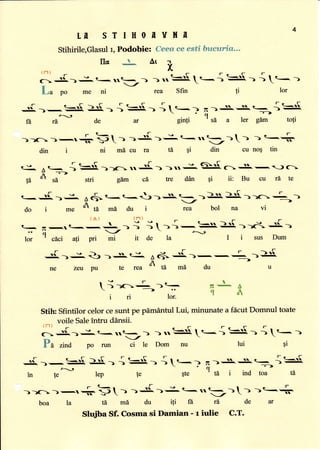 4
LA STIHOAVNA
Stihirile,Glasul 1, Podobie: Ceea ce esti bucuria...
La po me ni rea Sfin ți lor
fă ră de ar ginți să a ler găm toți
din i ni mă cu ra tă și din cu noș tin
ță să stri găm că tre dân și ii: Bu cu ră te
do i me tă mă du i rea bol na vi
lor căci ați pri mi it de la I i sus Dum
ne zeu pu te rea tă mă du u
i ri lor.
Stih: Sfintilor celor ce sunt pe pământul Lui, minunate a făcut Domnul toate
voile Sale întru dânsii.
Pă zind po run ci le Dom nu lui și
în țe lep țe ște tă i ind toa tă
boa la tă mă du iți fă ră de ar
Slujba Sf. Cosma si Damian - 1 iulie C.T.